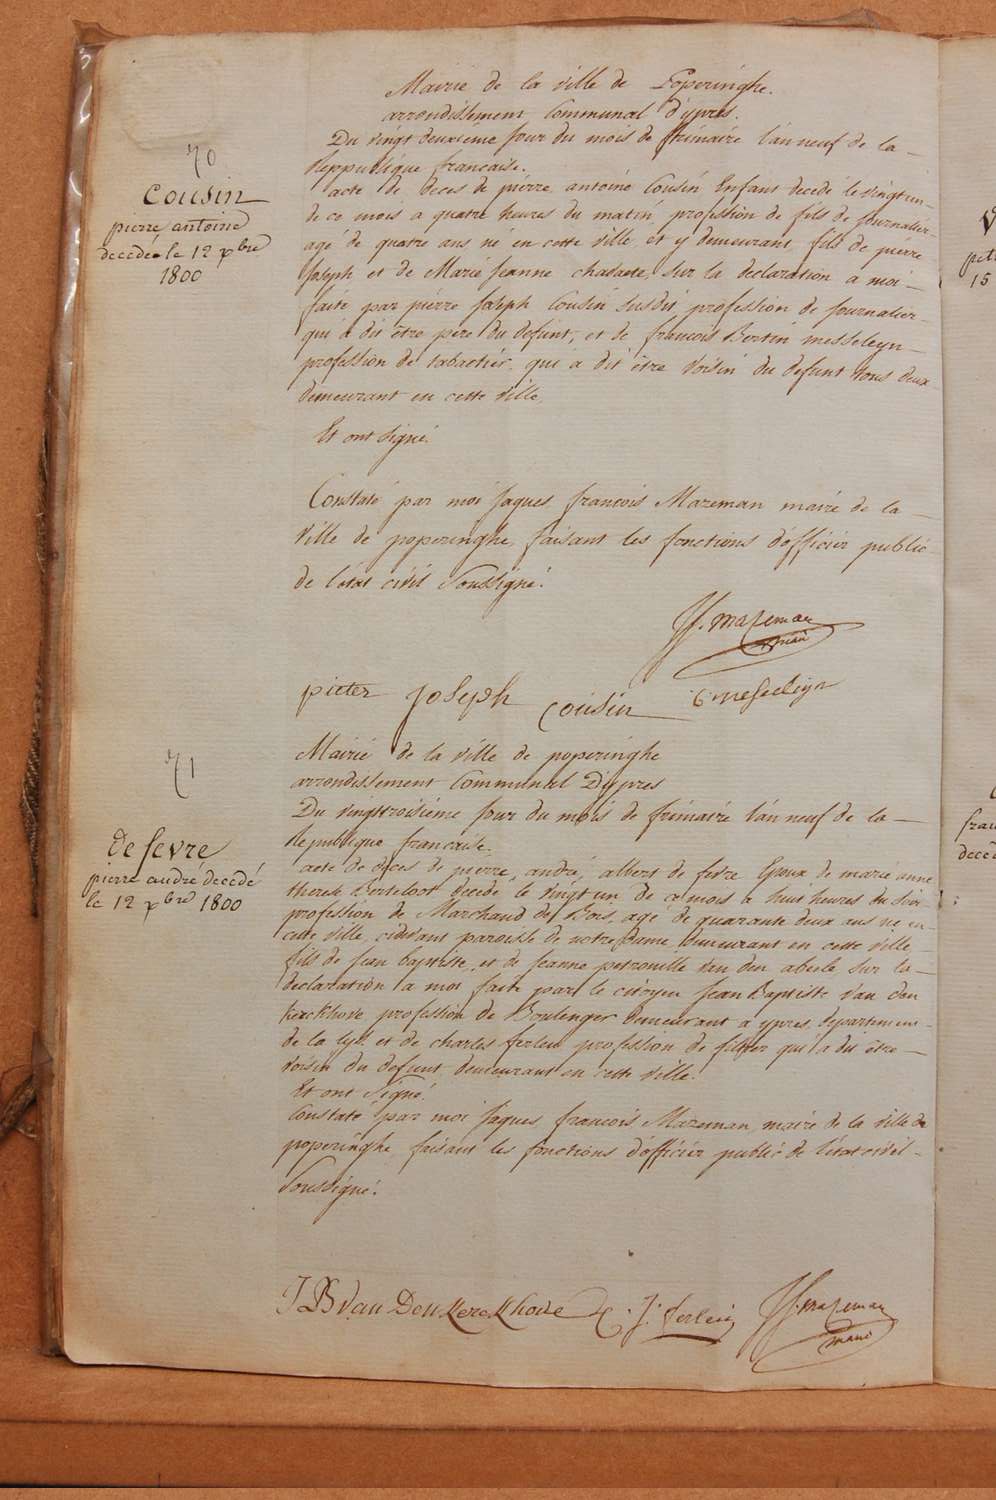 Mairie de la ville de Poperinghe.
arrondissement Communal d'ypres.
Du vingt deuxieme jour du mois de frimaire l'an neuf de la
Reppublique francaise.
70
cousin
pierre antoine
decedée le 12 xbre
1800
acte de deces de pierre antoine Cousin Enfant decedé le vingt un
de ce mois a quatre heures du matin, profession de fils de journalier
agé de quatre ans, né en cette ville, et y demeurant, fils de pierre
Joseph et de Marie Jeanne, sur la declaration a moi
faite par pierre Joseph Cousin susdit, profession de journalier
qui a dit être pere du defunt, et de francois Bertin messeleyn
profession de tabactier, qui a dit être voisin du defunt tous deux
demeurant en cette ville,
Et ont signé.
Constaté par moi Jaques francois Mazeman maire de la
ville de poperinghe, faisant les fonctions d'officier public
de l'état civil soussigné.
JF. mazeman
maire
pieter Joseph cousin messeleyn
Mairie de la ville de poperinghe
arrondissement Communal D'ypres
71
Du vingttroisiéme jour du mois de frimaire l'an neuf de la
Republique francaise.
de fevre
pierre andré decedé
le 12 xbre 1800
acte de déces de pierre, andré, albert de fevre Epoux de marie anne
therese decedé le vingt un de ce mois a huit heures du soir
profession de Marchand de Bois, agé de quarante deux ans né en
cette ville, cidevant paroisse de notre Dame, demeurant en cette ville
fils de jean baptiste, et de Jeanne petronille van den abeele, sur la
declaration a moi faite par le citoyen Jean Baptiste van den
kerckhove profession de Boulenger demeurant a ypres, departement
de la lys, et de charles ferlein profession de qui a dit être
voisin du defunt, demeurant en cette ville.
Et ont signé.
Constaté par moi Jaques, francois Mazeman, maire de la ville de
poperinghe, faisant les fonctions d'officier public de l'état civil
soussigné.
J B van Den Kerckhove C. J. ferlein JF. mazeman
maire